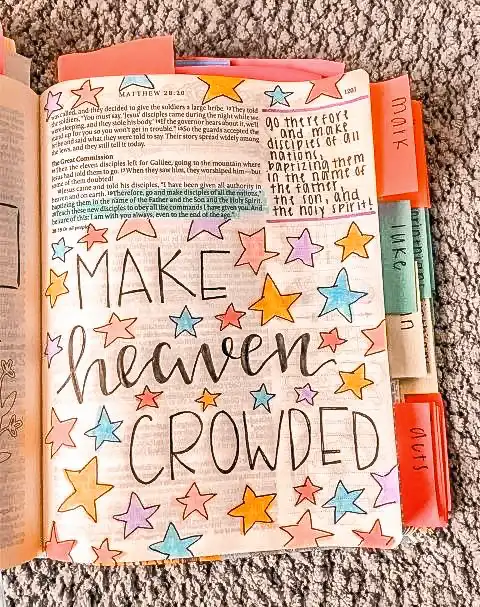 MATTHEW 28:20
1201
was called, and they decided to give the soldiers a large bribe. They told
the soldiers, "You must say, 'Jesus' disciples came during the night while we
were sleeping, and they stole his body.' If the governor hears about it, we'll
stand up for you so you won't get in trouble." So the guards accepted the
bribe and said what they were told to say. Their story spread widely among
the Jews, and they still tell it today.
The Great Commission
Then the eleven disciples left for Galilee, going to the mountain where
Jesus had told them to go. When they saw him, they worshiped him—but
some of them doubted!
Jesus came and told his disciples, "I have been given all authority in
heaven and on earth. Therefore, go and make disciples of all the nations,
baptizing them in the name of the Father and the Son and the Holy Spirit.
Teach these new disciples to obey all the commands I have given you. And
be sure of this: I am with you always, even to the end of the age."
28:19 Or all peoples
go therefore
and make
disciples of all
nations,
baptizing them
in the name of
the father,
the son, and
the holy spirit!
MAKE
heaven
CROWDED
mark
luke
acts